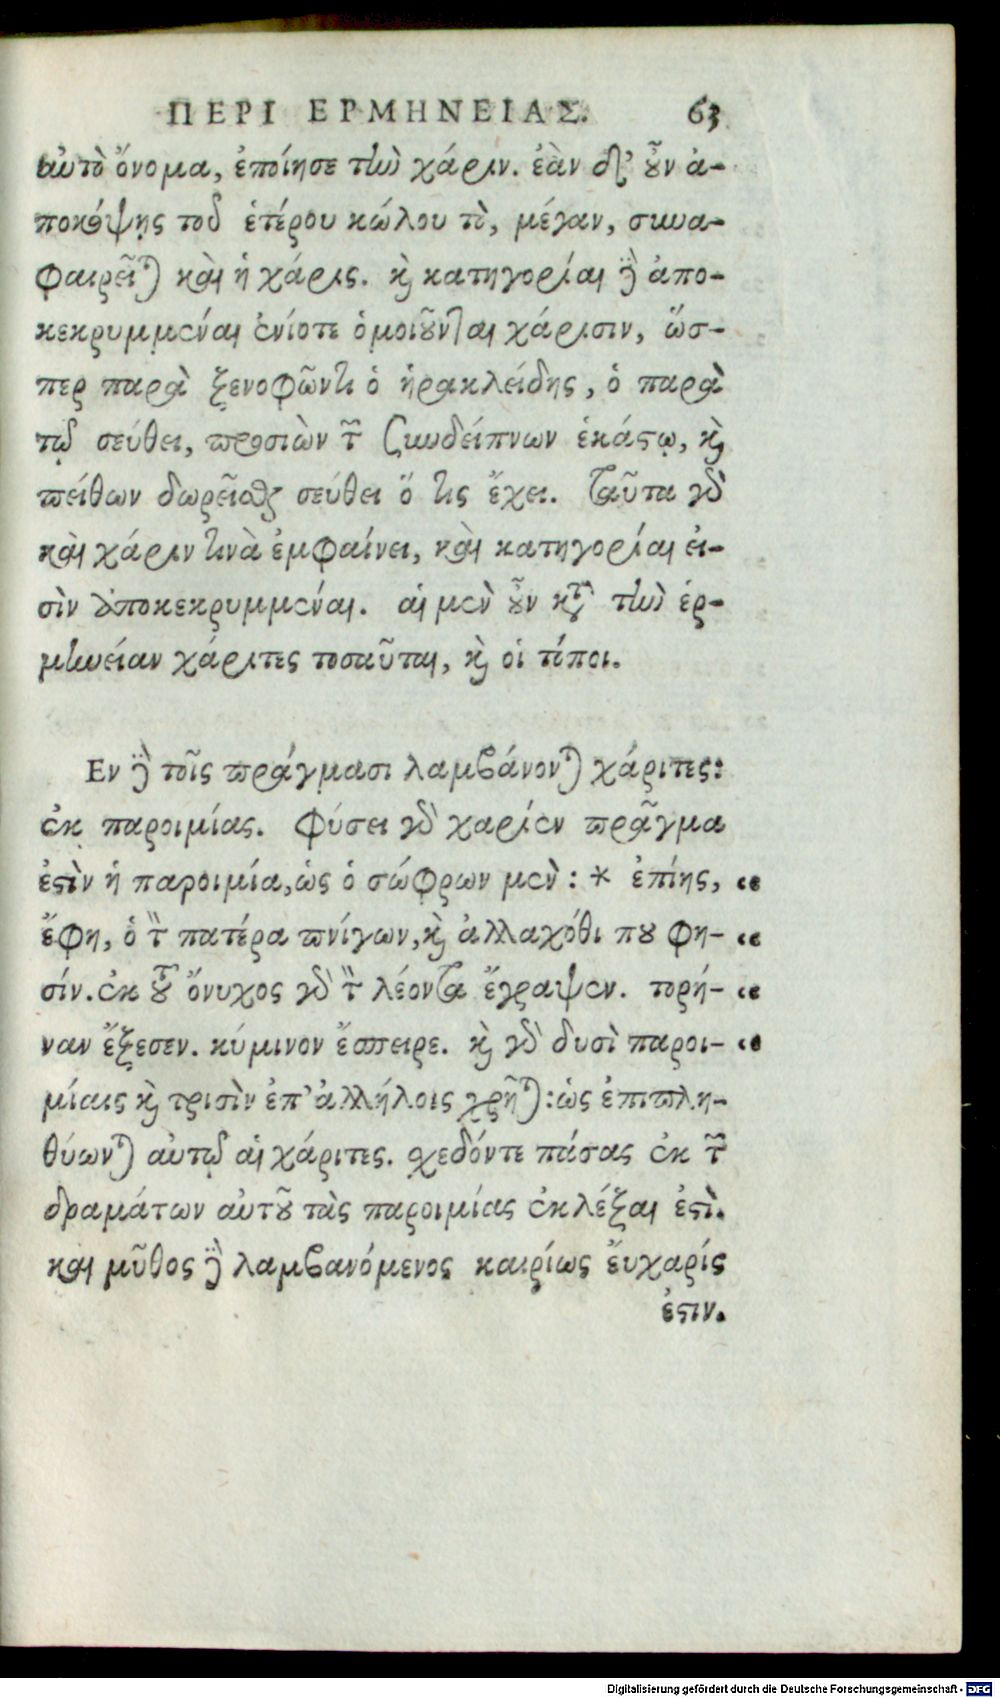 ΠΕΡΙ ΕΡΜΗΝΕΙΑΣ. 63
αὐτὸ ὄνομα, ἐποίησε τὴν χάριν. ἐὰν δ' οὖν ἀ-
ποκόψῃς τοῦ ἑτέρου κώλου τὸ, μέγαν, συνα-
φαιρεῖται καὶ ἡ χάρις. καὶ κατηγορίαι δὲ ἀπο-
κεκρυμμέναι ἐνίοτε ὁμοιοῦνται χάρισιν, ὥσ-
περ παρὰ ξενοφῶντι ὁ ἡρακλείδης, ὁ παρὰ
τῷ σεύθει, προσιὼν τῶν συνδείπνων ἑκάστῳ, καὶ
πείθων δωρεῖσθαι σεύθει ὅ τις ἔχει. ταῦτα γὰρ
καὶ χάριν τινὰ ἐμφαίνει, καὶ κατηγορίαι εἰ-
σὶν ἀποκεκρυμμέναι. αἱ μὲν οὖν κατὰ τὴν ἑρ-
μηνείαν χάριτες τοσαῦται, καὶ οἱ τόποι.
Εν δὲ τοῖς πράγμασι λαμβάνονται χάριτες:
ἐκ παροιμίας. φύσει γὰρ χαρίεν πρᾶγμα
ἐστὶν ἡ παροιμία, ὡς ὁ σώφρων μὲν: * ἐπίης, “
ἔφη, ὁ τὸν πατέρα πνίγων, καὶ ἀλλαχόθι που φη- “
σίν. ἐκ τοῦ ὄνυχος γὰρ τὸν λέοντα ἔγραψεν. τορύ- “
ναν ἔξεσεν. κύμινον ἔσπειρε. καὶ γὰρ δυσὶ παροι- “
μίαις καὶ τρισὶν ἐπ' ἀλλήλοις χρῆται: ὡς ἐπιπλη-
θύωνται αὐτῷ αἱ χάριτες. σχεδόντε πάσας ἐκ τῶν
δραμάτων αὐτοῦ τὰς παροιμίας ἐκλέξαι ἐστὶ.
καὶ μῦθος δὲ λαμβανόμενος καιρίως ἔυχαρίς
ἐστιν.
Digitalisierung gefördert durch die Deutsche Forschungsgemeinschaft - DFG